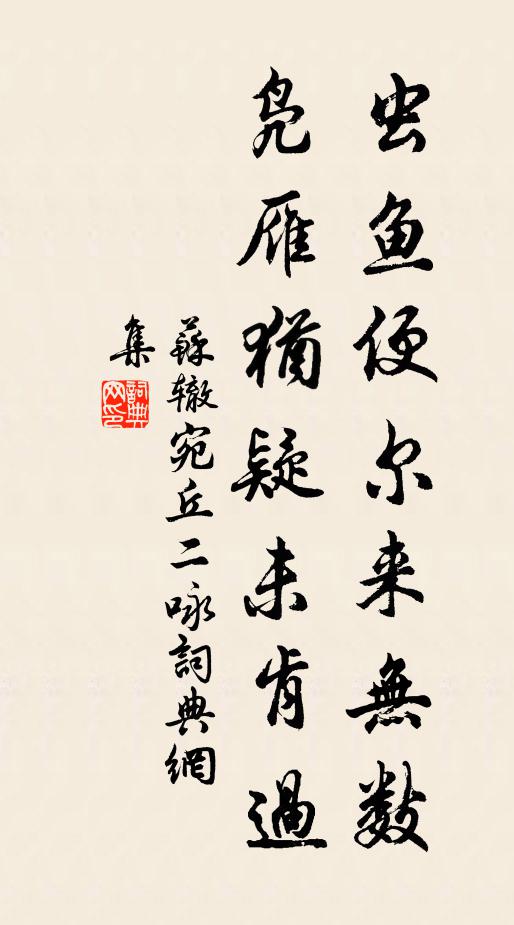 虫鱼便尔来無数
凫雁猶疑未肯過
蘇辙宛丘二咏詞典網
集
詞典
网印